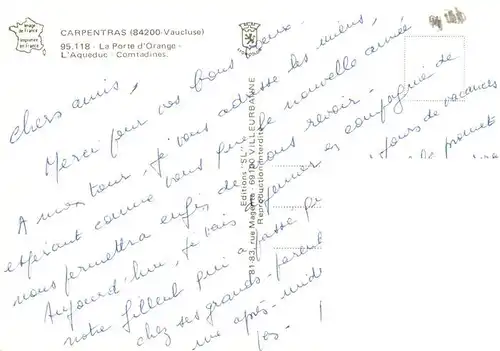 Image de France
Imprimée en France
CARPENTRAS (84200-Vaucluse)
95.118 - La Porte d'Orange -
L'Aqueduc - Comtadines.
Chers amis,
Merci pour vos bons vœux.
A mon tour, je vous adresse les miens,
espérant comme vous que la nouvelle année
nous permettra enfin de nous revoir.
Aujourd'hui, je vais déjeuner en compagnie de
notre filleul qui a passé jours de vacances
chez ses grands-parents promet
une après-midi
Editions "SL"
81-83, rue Magenta - 69100 VILLEURBANNE
Reproduction interdite